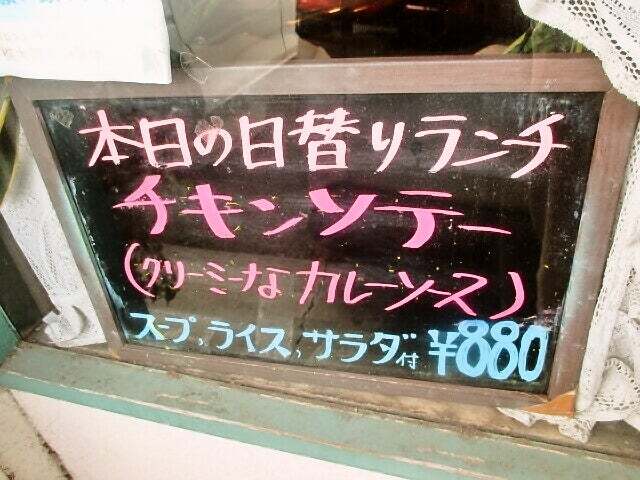 本日の日替りランチ
チキンソテー
(クリーミーなカレーソース)
スープ、ライス、サラダ付 ¥880